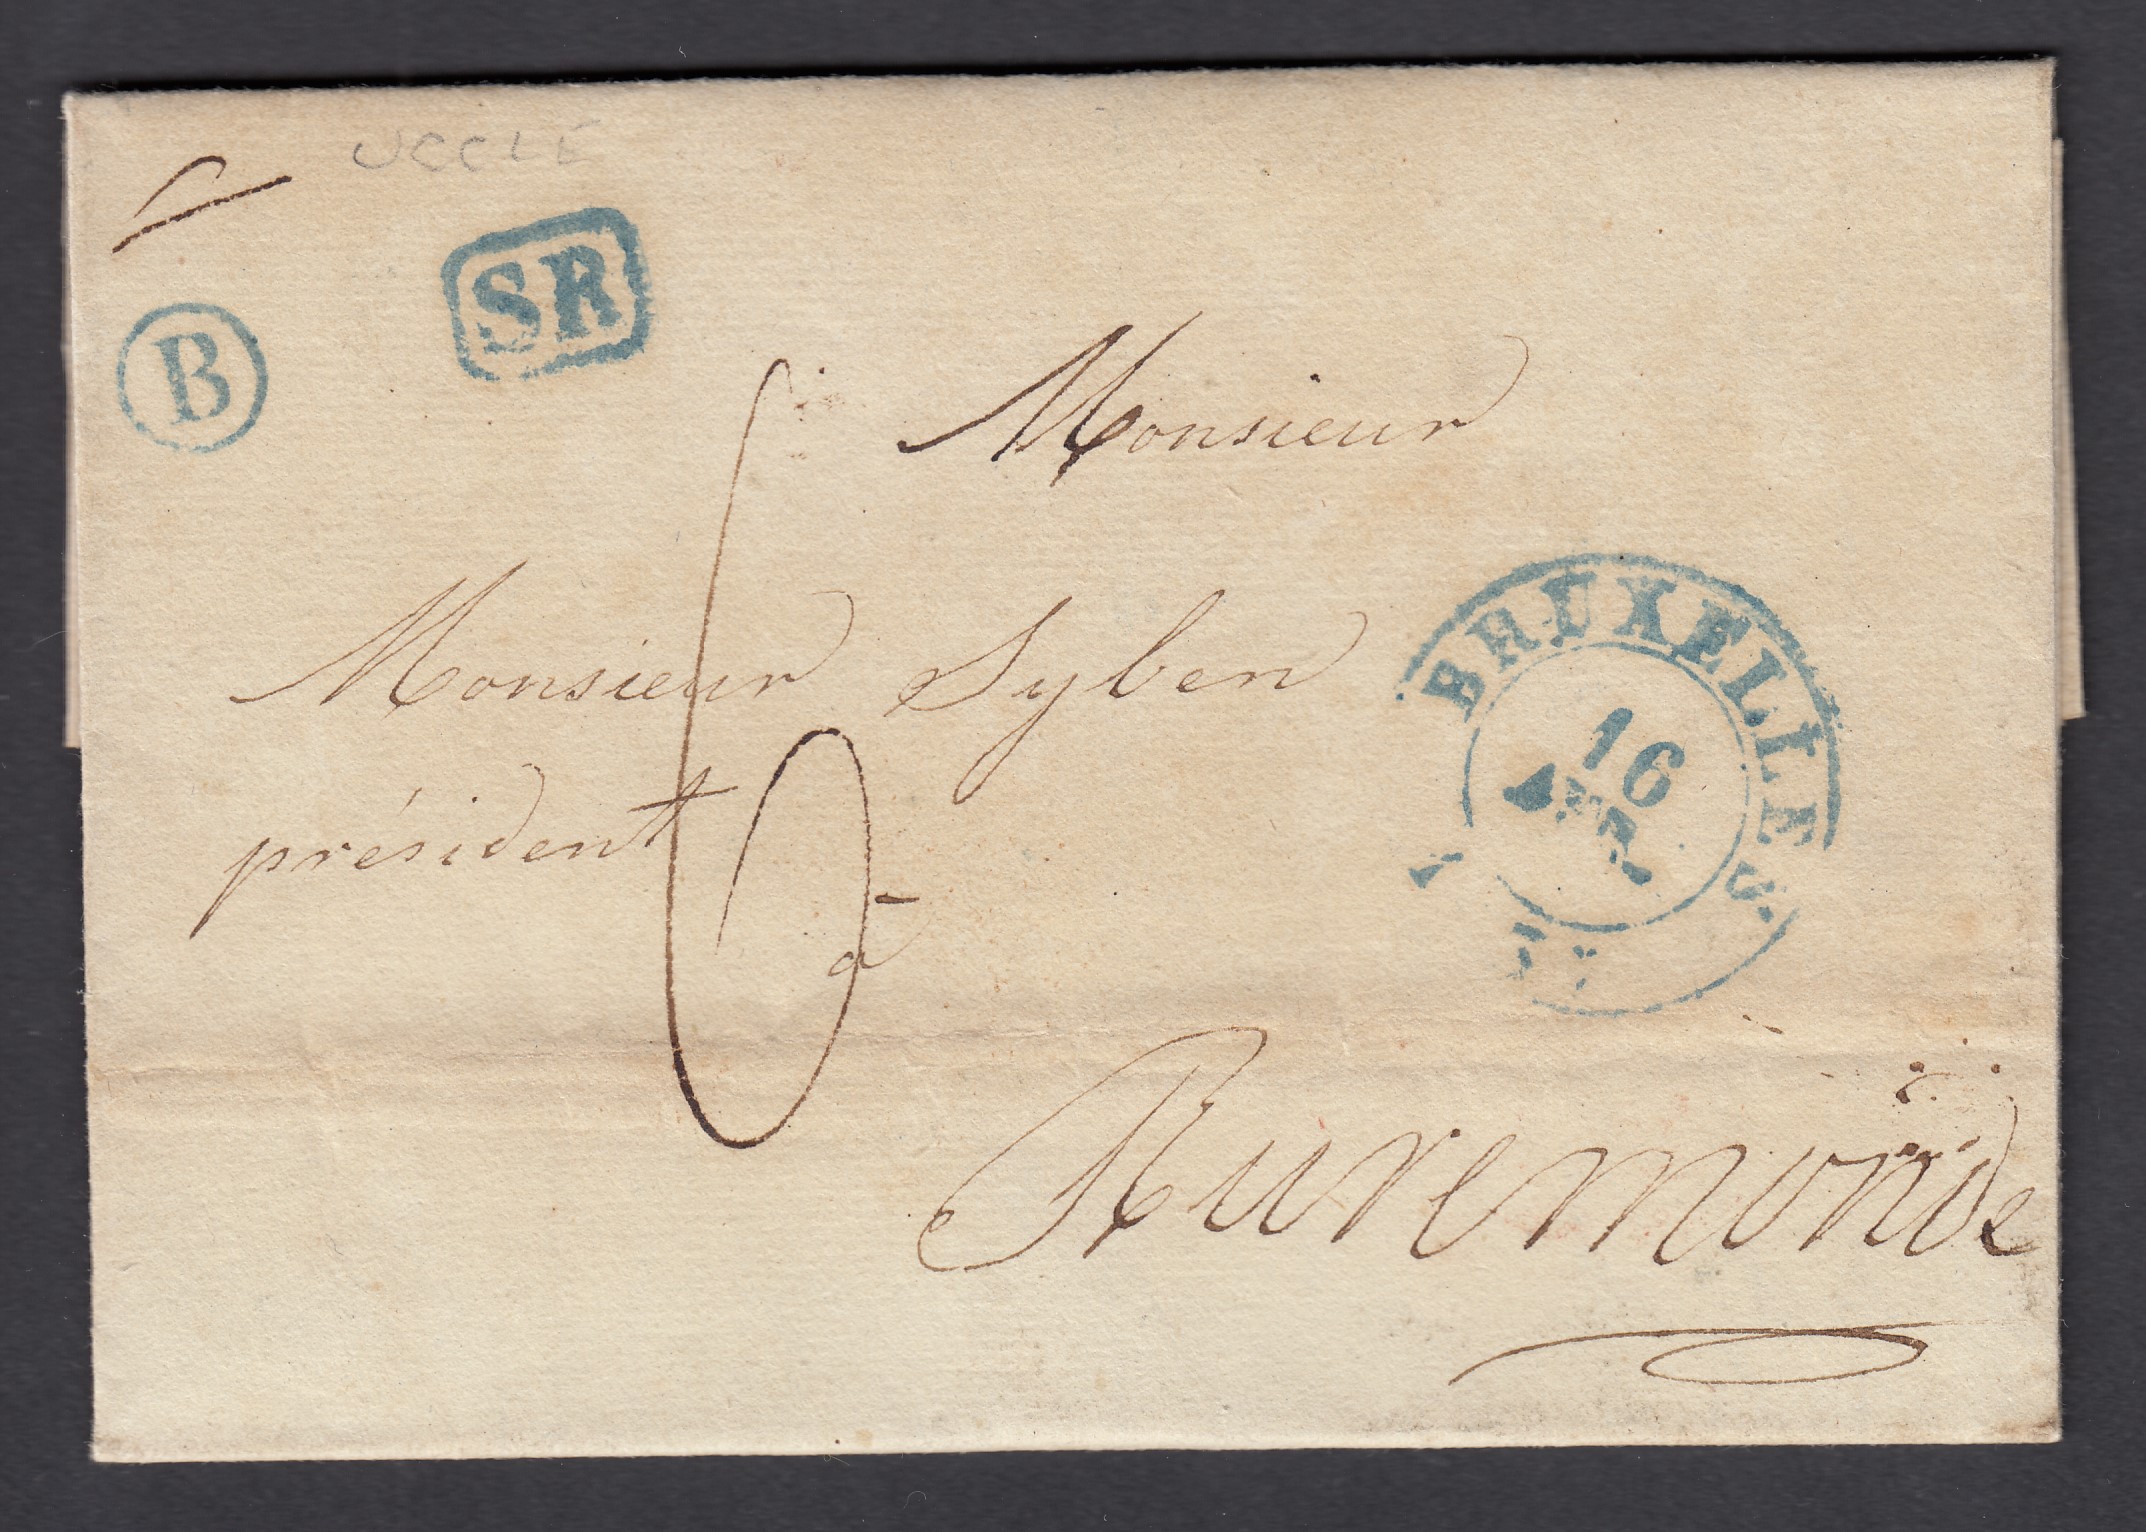 UCCLE
SR
B
Monsieur
Monsieur Syben
président
6
à
BRUXELLES.
16
AVR.
Ruremonde